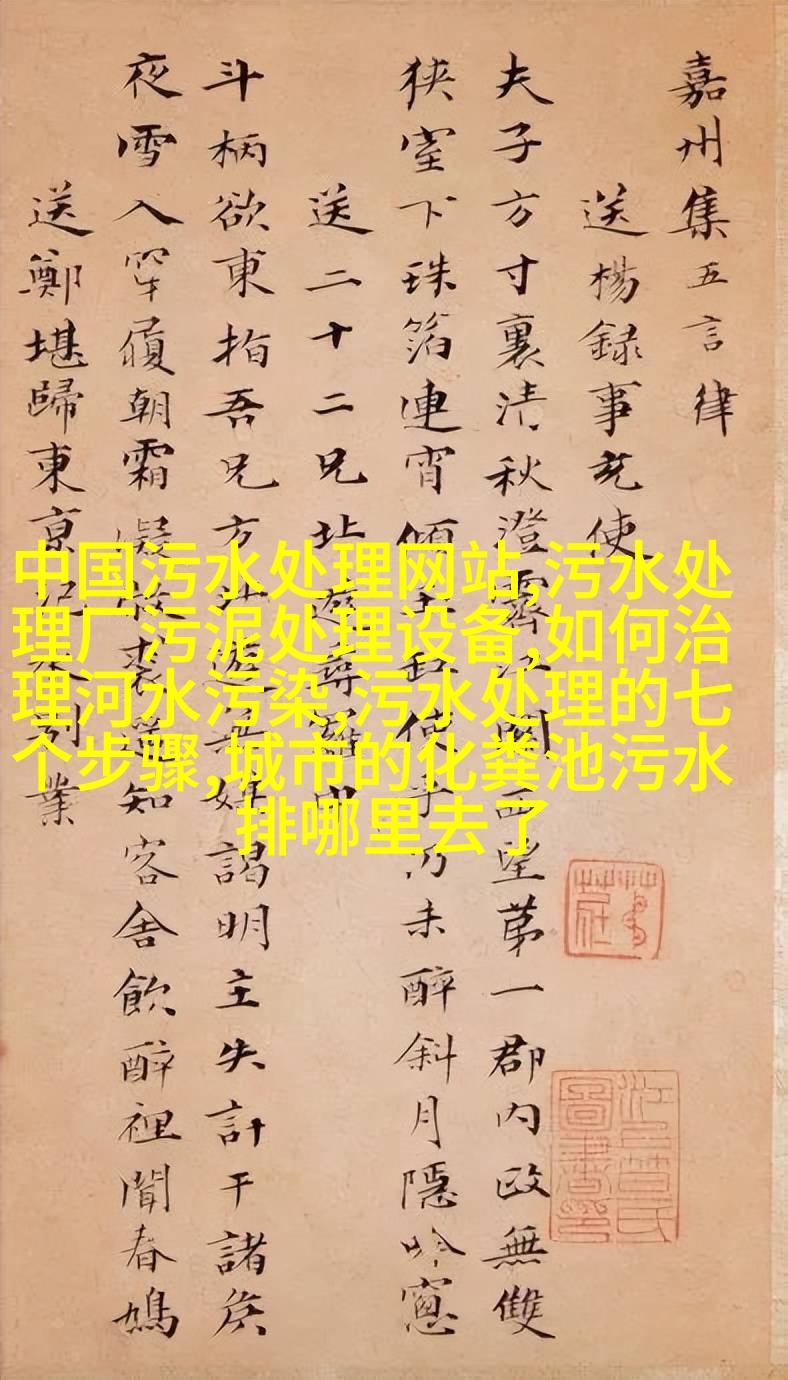 嘉州集五言律
送楊録事充使
夫子方寸裏清秋澄霽江關西望第一郡内政無雙
狹室下珠箔連宵傾玉缸使乎仍未醉斜月隱吟窓
送二十二兄北遊尋羅中
斗柄欲東指吾兄方北遊無媒謁明主失計干諸侯
夜雪入穿履朝霜凝敝裘遥知客舍飲醉裡聞春鳩
送鄭堪歸東京汜水别業
中国污水处理网站,污水处
理厂污泥处理设备,如何治
理河水污染,污水处理的七
个步骤,城市的化粪池污水
排哪里去了